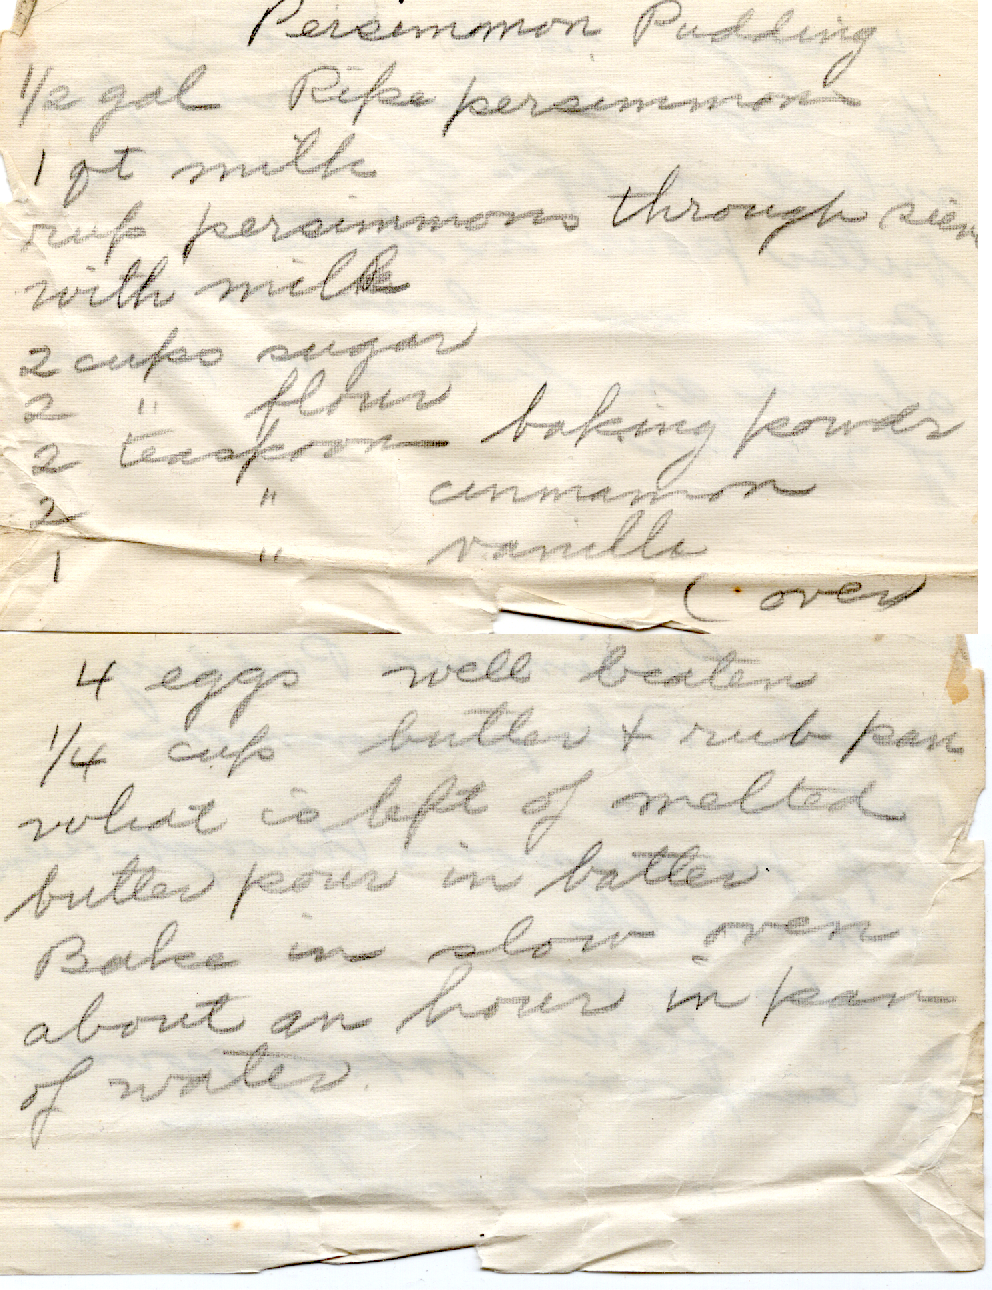 Persimmon Pudding
1/2 gal Ripe persimmons
1 pt milk
rub persimmons through sieve
with milk
2 cups sugar
2 " flour
2 teaspoon baking powdr
2 " cinnamon
1 " vanilla
( over
4 eggs well beaten
1/4 cup butter + rub pan
what is left of melted
butter pour in batter
Bake in slow oven
about an hour in pan
of water.